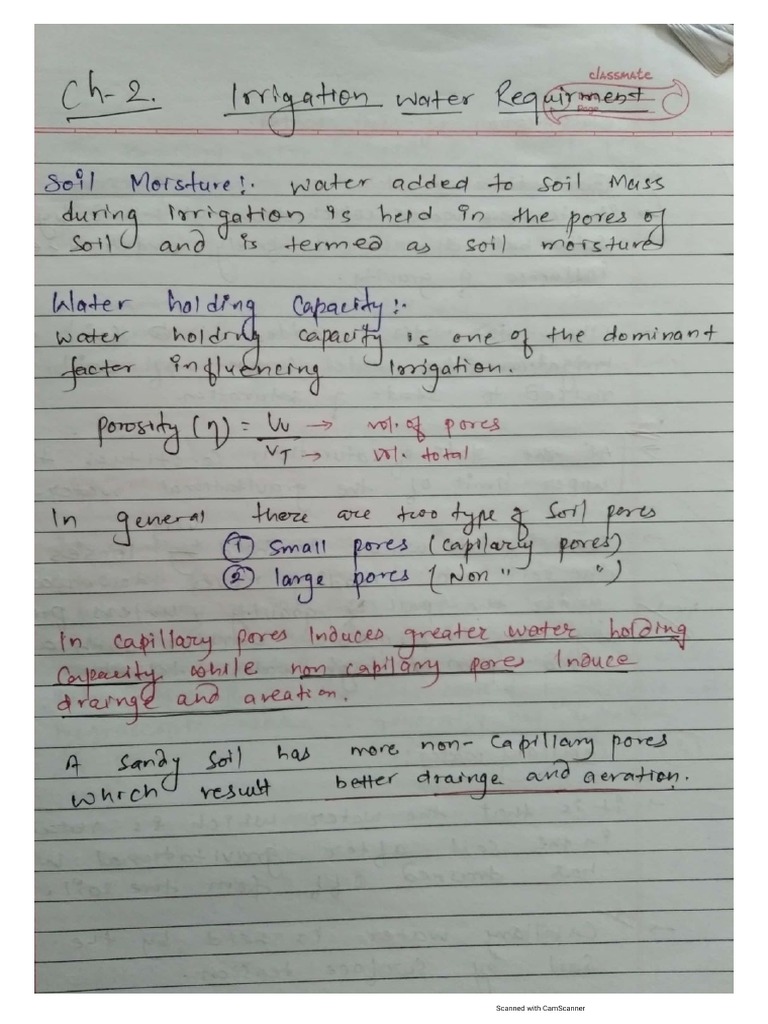 classmate
Page
Ch-2. Irrigation water Requirment
Soil Moisture:- water added to soil Mass
during irrigation is held in the pores of
soil and is termed as soil moisture
Water holding Capacity:-
water holding capacity is one of the dominant
factor influencing Irrigation.
porosity (η) = Vv → vol. of pores
VT → vol. total
In general there are two type of soil pores
① small pores (capilarly pores)
② large pores (Non " ")
In capillary pores Induces greater water holding
Capacity while non capilary pores Induce
drainge and areation.
A sandy soil has more non-capillary pores
which result better drainge and aeration.
Scanned with CamScanner